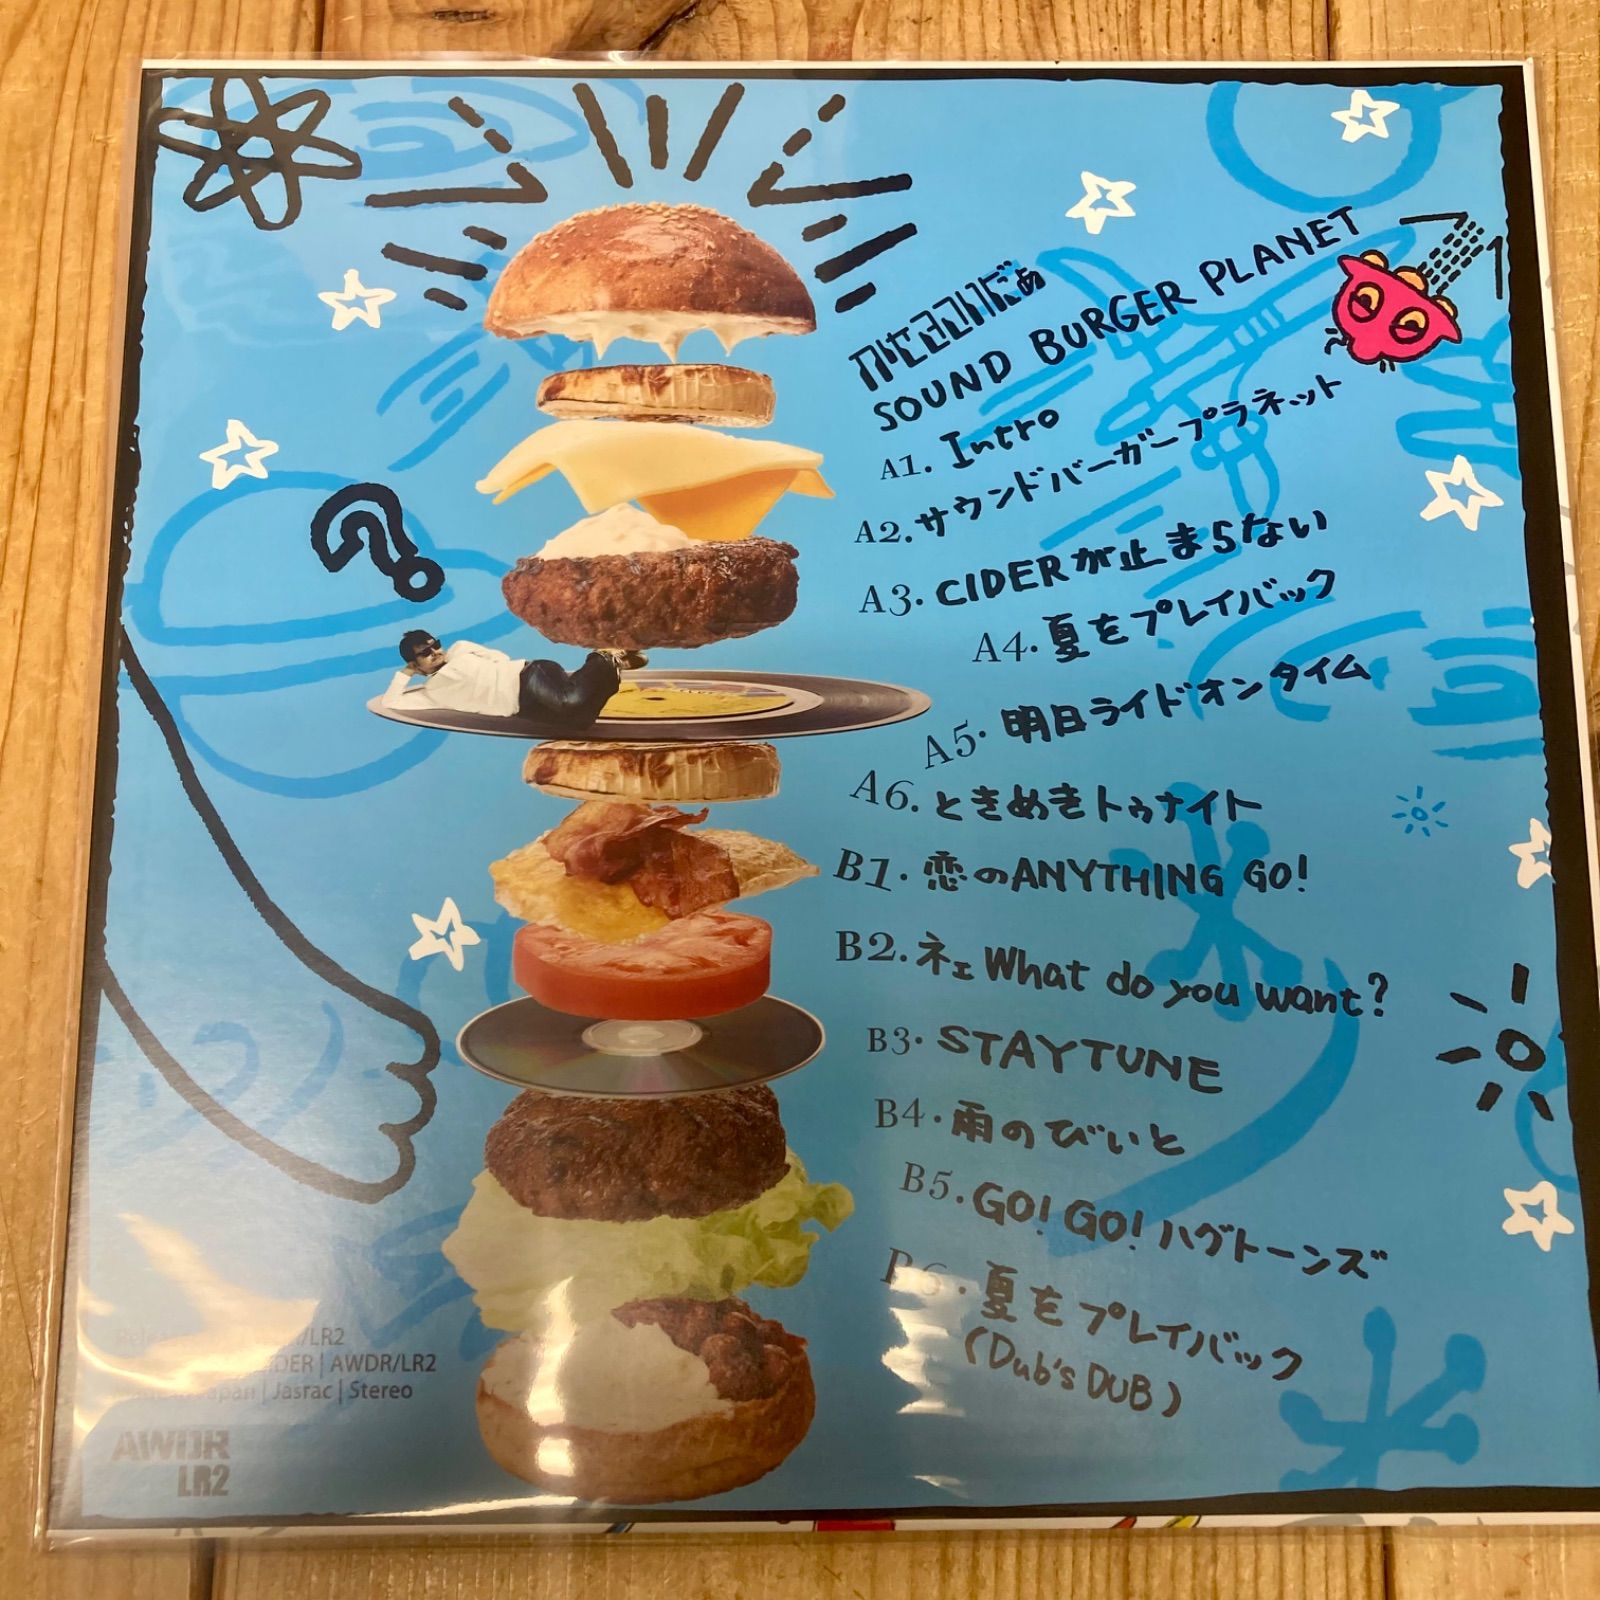 SOUND BURGER PLANET
A1. Intro
A2. サウンドバーガープラネット
A3. CIDERが止まらない
A4. 夏をプレイバック
A5. 明日ライドオンタイム
A6. ときめきトゥナイト
B1. 恋のANYTHING GO!
B2. ネェ What do you want?
B3. STAYTUNE
B4. 雨のびいと
B5. GO! GO! ハグトーンズ
B6. 夏をプレイバック
(Dub's DUB)
/LR2
| AWDR/LR2
Japan | Jasrac | Stereo
AWDR
LR2